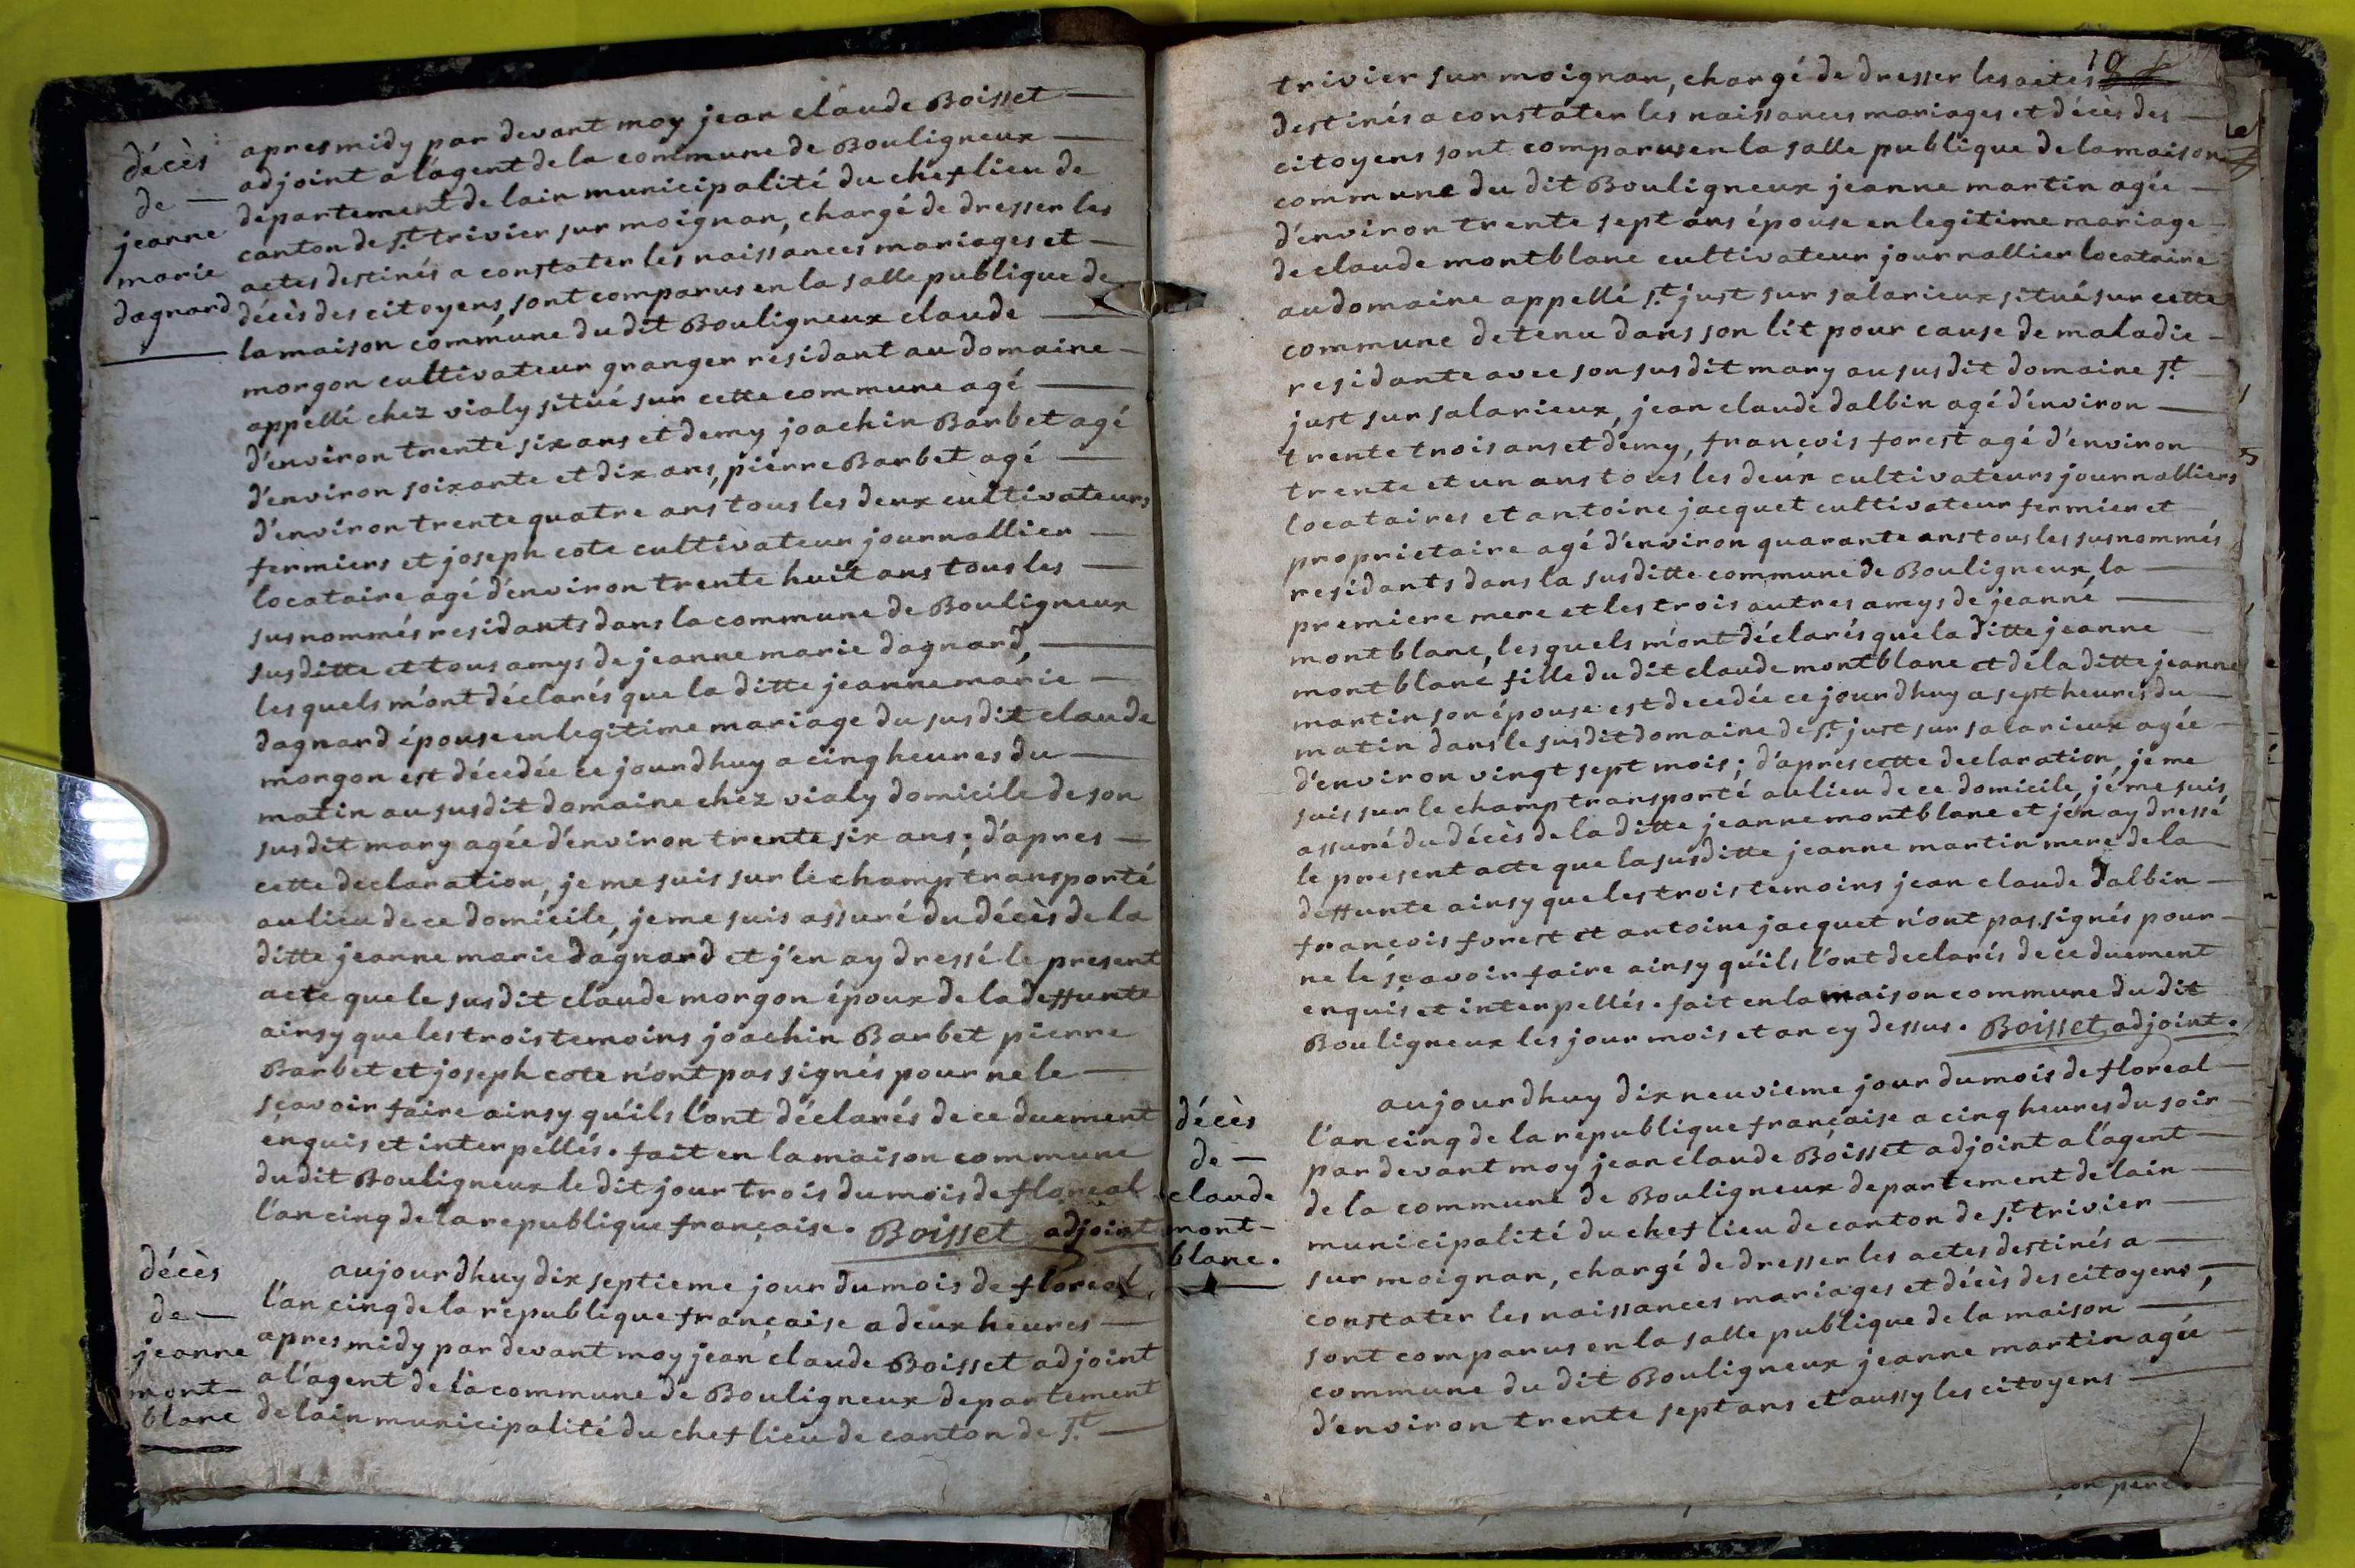 décès
de —
jeanne
marie
dagnard
apres midy par devant moy jean claude Boisset —
adjoint a l'agent de la commune de Bouligneux —
departement de lain municipalité du chef lieu de
canton de st. trivier sur moignan, chargé de dresser les
actes destinés a constater les naissances mariages et —
décès des citoyens, sont comparus en la salle publique de
la maison commune du dit Bouligneux claude —
morgon cultivateur granger residant au domaine —
appellé chez vialy situé sur cette commune agé —
d'environ trente six ans et demy joachin Barbet agé
d'environ soixante et dix ans, pierre Barbet agé —
d'environ trente quatre ans tous les deux cultivateurs
fermiers et joseph cote cultivateur journallier —
locataire agé d'environ trente huit ans tous les —
susnommés residants dans la commune de Bouligneux
susditte et tous amys de jeanne marie dagnard, —
les quels m'ont déclarés que la ditte jeanne marie —
dagnard épouse en legitime mariage du susdit claude
morgon est décedée ce jourdhuy a cinq heures du —
matin au susdit domaine chez vialy domicile de son
susdit mary agée d'environ trente six ans; d'apres —
cette declaration, je me suis sur le champ transporté
au lieu de ce domicile, je me suis assuré du décès de la
ditte jeanne marie dagnard et j'en ay dressé le present
acte que le susdit claude morgon époux de la deffunte
ainsy que les trois temoins joachin Barbet pierre
Barbet et joseph cote n'ont pas signés pour ne le —
sçavoir faire ainsy qu'ils l'ont déclarés de ce duement
enquis et interpellés. fait en la maison commune
du dit Bouligneux le dit jour trois du mois de floreal
l'an cinq de la republique française. Boisset adjoint
décès
de —
jeanne
mont-
blanc
aujourdhuy dix septieme jour du mois de floreal
l'an cinq de la republique française a deux heures —
apres midy par devant moy jean claude Boisset adjoint
a l'agent de la commune de Bouligneux departement
de lain municipalité du chef lieu de canton de st. —
19
trivier sur moignan, chargé de dresser les actes
destinés a constater les naissances mariages et décès des —
citoyens sont comparus en la salle publique de la maison
commune du dit Bouligneux jeanne martin agée —
d'environ trente sept ans épouse en legitime mariage
de claude montblanc cultivateur journallier locataire
au domaine appellé st. just sur salarieux situé sur cette
commune detenu dans son lit pour cause de maladie —
residante avec son susdit mary au susdit domaine st.
just sur salarieux, jean claude dalbin agé d'environ —
trente trois ans et demy, françois forest agé d'environ
trente et un ans tous les deux cultivateurs journalliers
locataires et antoine jacquet cultivateur fermier et
proprietaire agé d'environ quarante ans tous les susnommés
residants dans la susditte commune de Bouligneux, la —
premiere mere et les trois autres amys de jeanne —
montblanc, les quels m'ont déclarés que la ditte jeanne
montblanc fille du dit claude montblanc et de la ditte jeanne
martin son épouse est decedée ce jourdhuy a sept heures du
matin dans le susdit domaine de st. just sur salarieux agée
d'environ vingt sept mois; d'apres cette declaration, je me
suis sur le champ transporté au lieu de ce domicile, je me suis
assuré du décès de la ditte jeanne montblanc et j'en ay dressé
le present acte que la susditte jeanne martin mere de la
deffunte ainsy que les trois temoins jean claude dalbin —
françois forest et antoine jacquet n'ont pas signés pour —
ne le sçavoir faire ainsy qu'ils l'ont declarés de ce duement
enquis et interpellés. fait en la maison commune du dit
Bouligneux les jour mois et an cy dessus. Boisset adjoint.
décès
de —
claude
mont-
blanc.
aujourdhuy dix neuvieme jour du mois de floreal
l'an cinq de la republique française a cinq heures du soir
par devant moy jean claude Boisset adjoint a l'agent —
de la commune de Bouligneux departement de lain —
municipalité du chef lieu de canton de st. trivier —
sur moignan, chargé de dresser les actes destinés a —
constater les naissances mariages et décès des citoyens, —
sont comparus en la salle publique de la maison —
commune du dit Bouligneux jeanne martin agée
d'environ trente sept ans et aussy les citoyens —